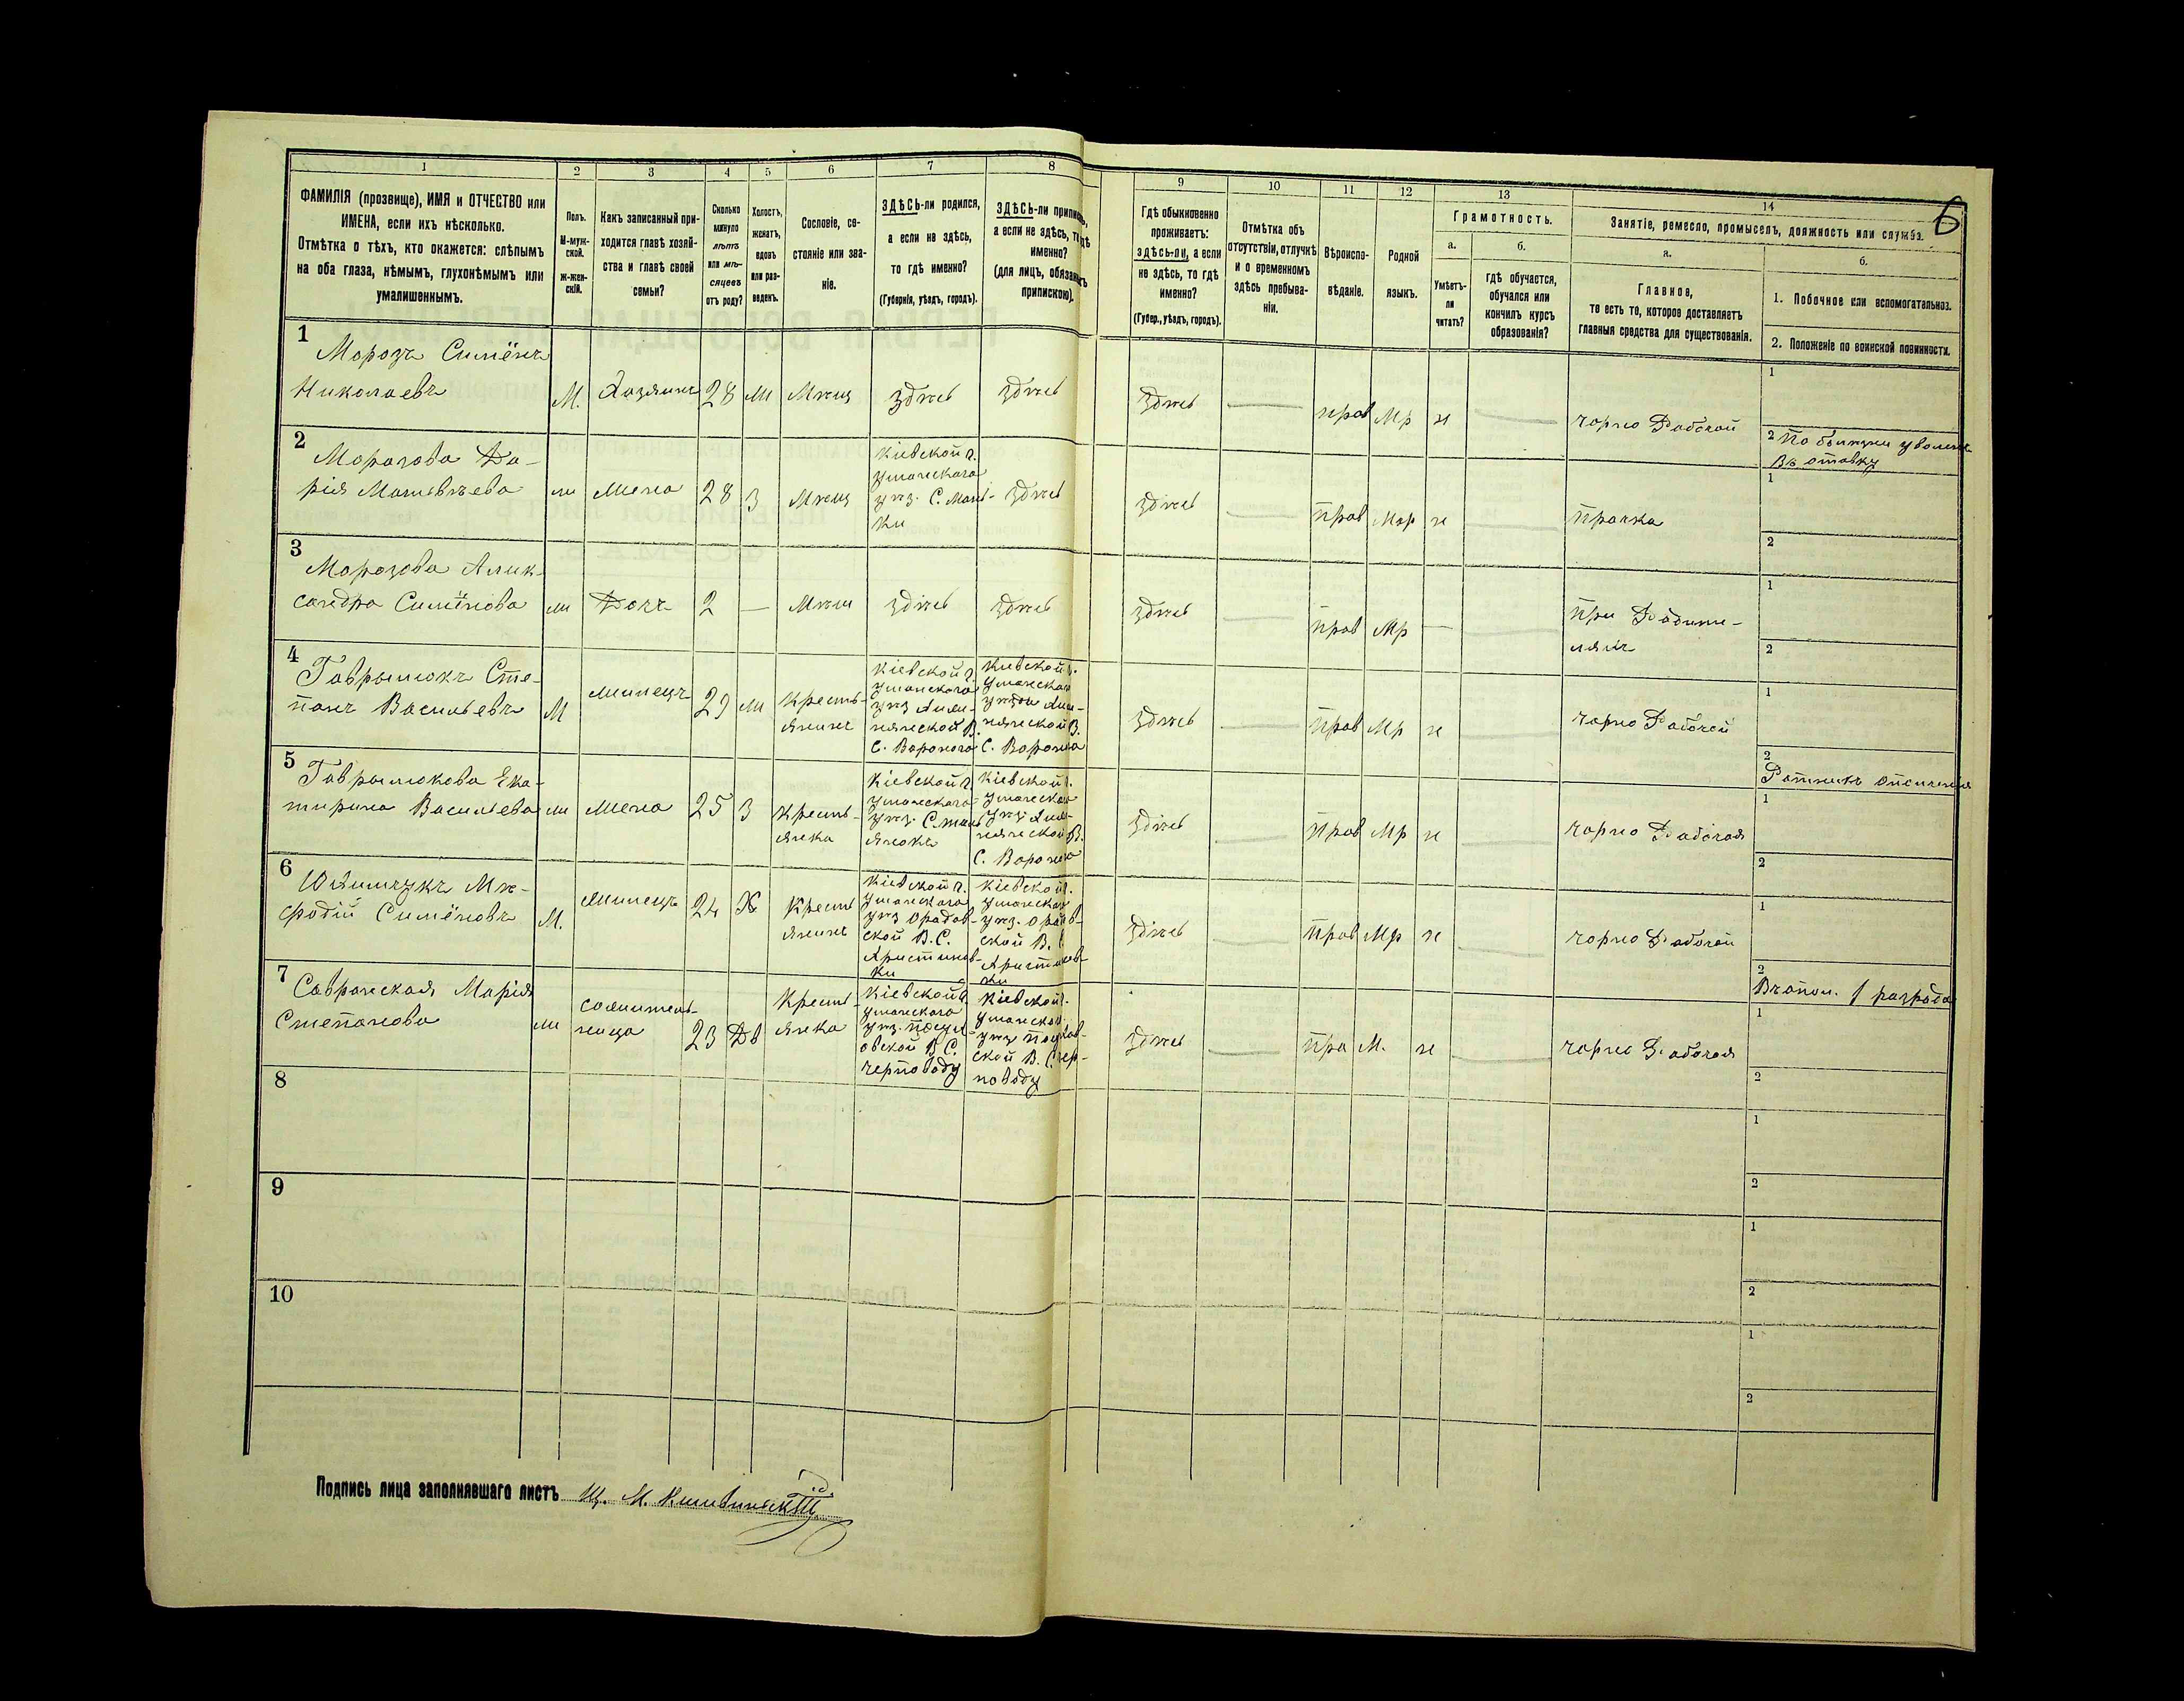 6
1
2
3
4
5
6
7
8
9
10
11
12
13
14
ФАМИЛІЯ (прозвище), ИМЯ и ОТЧЕСТВО или
ИМЕНА, если ихъ нѣсколько.
Отмѣтка о тѣхъ, кто окажется: слѣпымъ
на оба глаза, нѣмымъ, глухонѣмымъ или
умалишеннымъ.
Полъ.
М-муж-
ской.
ж-жен-
скій.
Какъ записанный при-
ходится главѣ хозяй-
ства и главѣ своей
семьи?
Сколько
минуло
лѣтъ
или мѣ-
сяцевъ
отъ роду?
Холостъ,
женатъ,
вдовъ
или раз-
веденъ.
Сословіе, со-
стояніе или зва-
ніе.
ЗДѢСЬ-ли родился,
а если не здѣсь,
то гдѣ именно?
(Губернія, уѣздъ, городъ).
ЗДѢСЬ-ли приписанъ,
а если не здѣсь, то гдѣ
именно?
(для лицъ, обязанныхъ
припискою).
Гдѣ обыкновенно
проживаетъ:
здѣсь-ли, а если
не здѣсь, то гдѣ
именно?
(Губер., уѣздъ, городъ).
Отмѣтка объ
отсутствіи, отлучкѣ
и о временномъ
здѣсь пребыва-
ніи.
Вѣроиспо-
вѣданіе.
Родной
языкъ.
Грамотность.
а.
Умѣетъ-
ли
читать?
б.
гдѣ обучается,
обучался или
кончилъ курсъ
образованія?
Занятіе, ремесло, промыселъ, должность или служба.
а.
Главное,
то есть то, которое доставляетъ
главныя средства для существованія.
б.
1. Побочное или вспомогательное.
2. Положеніе по воинской повинности.
1
Морозъ Симёнъ
Николаевъ
М. Хозяинъ 28 ж Мѣщ здѣсь здѣсь здѣсь — прав Мр н — чорно Рабочой
1
2 По болѣзни уволенъ
Въ отавку
2
Морозова Да-
рія
ж жена 28 З Мѣщ
Кіевской г.
уманскаго
уѣз. С. Мань-
ки
здѣсь здѣсь — прав Мар н — прачка
1
2
3
Морозова Алик-
сандра Симёнова
ж Дочъ 2 — Мѣщ здѣсь здѣсь здѣсь — прав Мр — — при Радите-
ляхъ
1
2
4
Гаврылюкъ Сте-
панъ Васильевъ
М жилецъ 29 ж Кресть-
янинъ
Кіевской г.
уманскаго
С. Вороного
Киевской г.
уманскаго
С. Вороно
здѣсь прав Мр н чорно Рабочей
1
2
Ратникъ Ополченія
5
Гаврылюкова Ека-
тирина Васильева
ж жена 25 З Кресть-
янка
Кіевской г.
уманскаго
Кіевской г.
С. Вороно
здѣсь — прав Мр н — чорно Рабочая
1
2
6
Симёновъ
М. жилецъ 24 Х Кресть
янинъ
Кіевской г.
уманскаго
уѣз Орадов-
ской В. С.
Аристинов-
ки
Кіевской г.
уѣз. Орадов-
ской В. С
Аристинов-
ки
здѣсь — прав Мр н — чорно Рабочой
1
2
Вѣопол. 1 разрада
7
Савранская Марія
Степанова
ж сожитель-
ница
23 Дв Кресть
янка
Кіевской г.
уманскаго
В С.
черповоду
Кіевской г.
ской В. С чер-
поводу
здѣсь — пра М. н — чорно Рабочая
1
2
8
1
2
9
1
2
10
1
2
Подпись лица заполнявшаго листъ